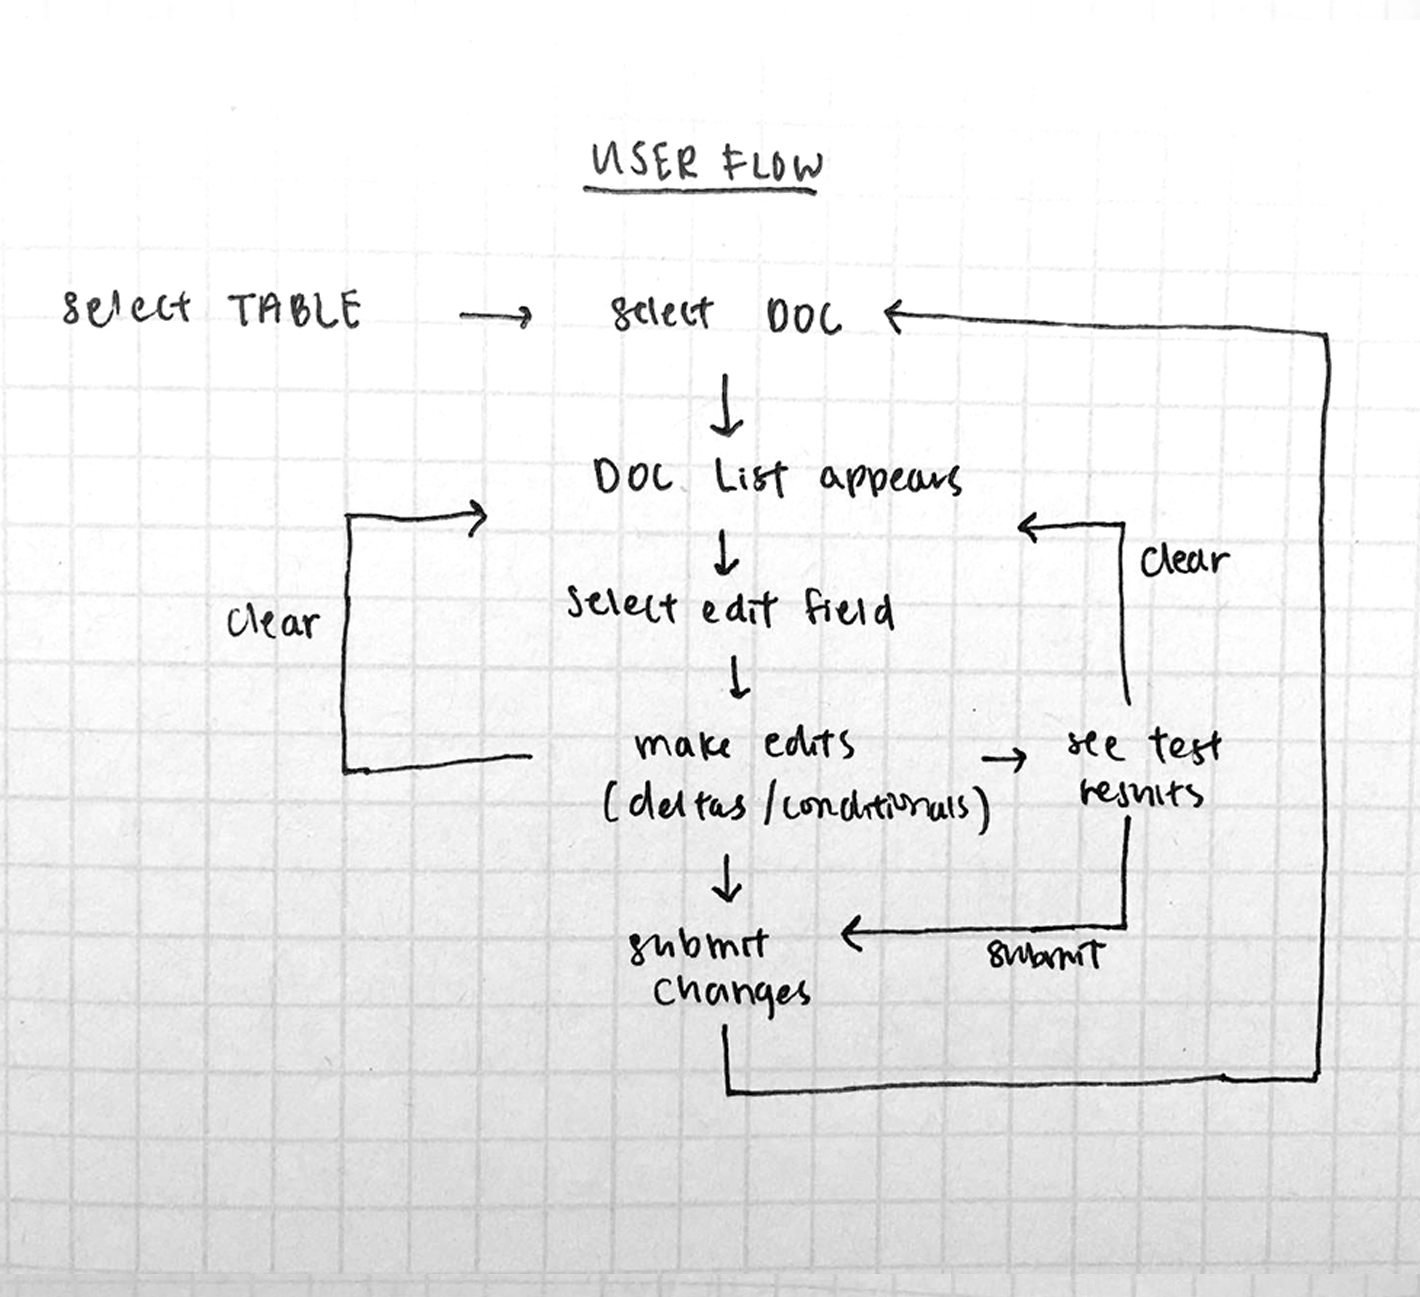 USER FLOW
select TABLE → select DOC
↓
DOC List appears
clear
↓
clear
select edit field
↓
make edits → see test
(deltas/conditionals) results
↓
submit submit
changes